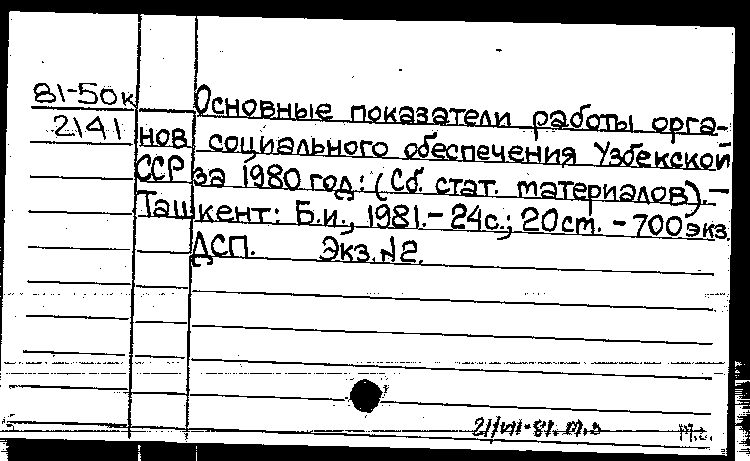 81-50к
2141
Основные показатели работы орга-
нов социального обеспечения Узбекской
ССР за 1980 год: (Сб. стат. материалов).–
Ташкент: Б.и., 1981.– 24с.; 20см. – 700экз.
ДСП. Экз.№2.
21/VII-81.